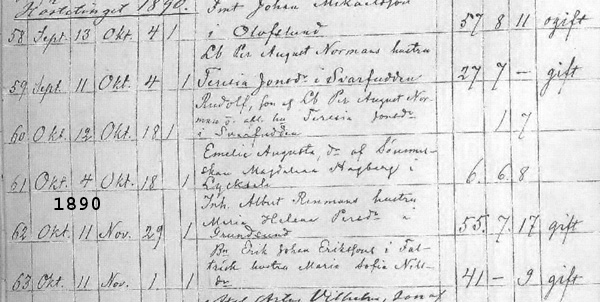 Hösttinget 1890.
Inh Johan Mikaelsson
58 Sept. 13 Okt. 4 1 i Olofslund 57 8 11 ogift
Lb Per August Normans hustru
59 Sept. 11 Okt. 4 1 Teresia Jonsdr i Svarfudden 27 7 — gift
Rudolf, son af Lb Per August Nor-
mans o. Teresia Jonsdr 1 7
60 Okt. 12 Okt. 18 1 i Svarfudden
Emelie Augusta, dr af
Magdalena Hagberg i
61 Okt. 4 Okt. 18 1 Lycksele 6. 6. 8
1890
Inh. Albert Renmans hustru
Maria Helena Persdr
62 Okt. 11 Nov. 29 1 Grundsund 55. 7. 17 gift
Bn Erik Johan Erikssons i
hustru Maria Sofia Nils-
63 Okt. 11 Nov. 1. 1 dr 41 — 9 gift
Vilhelm, son af